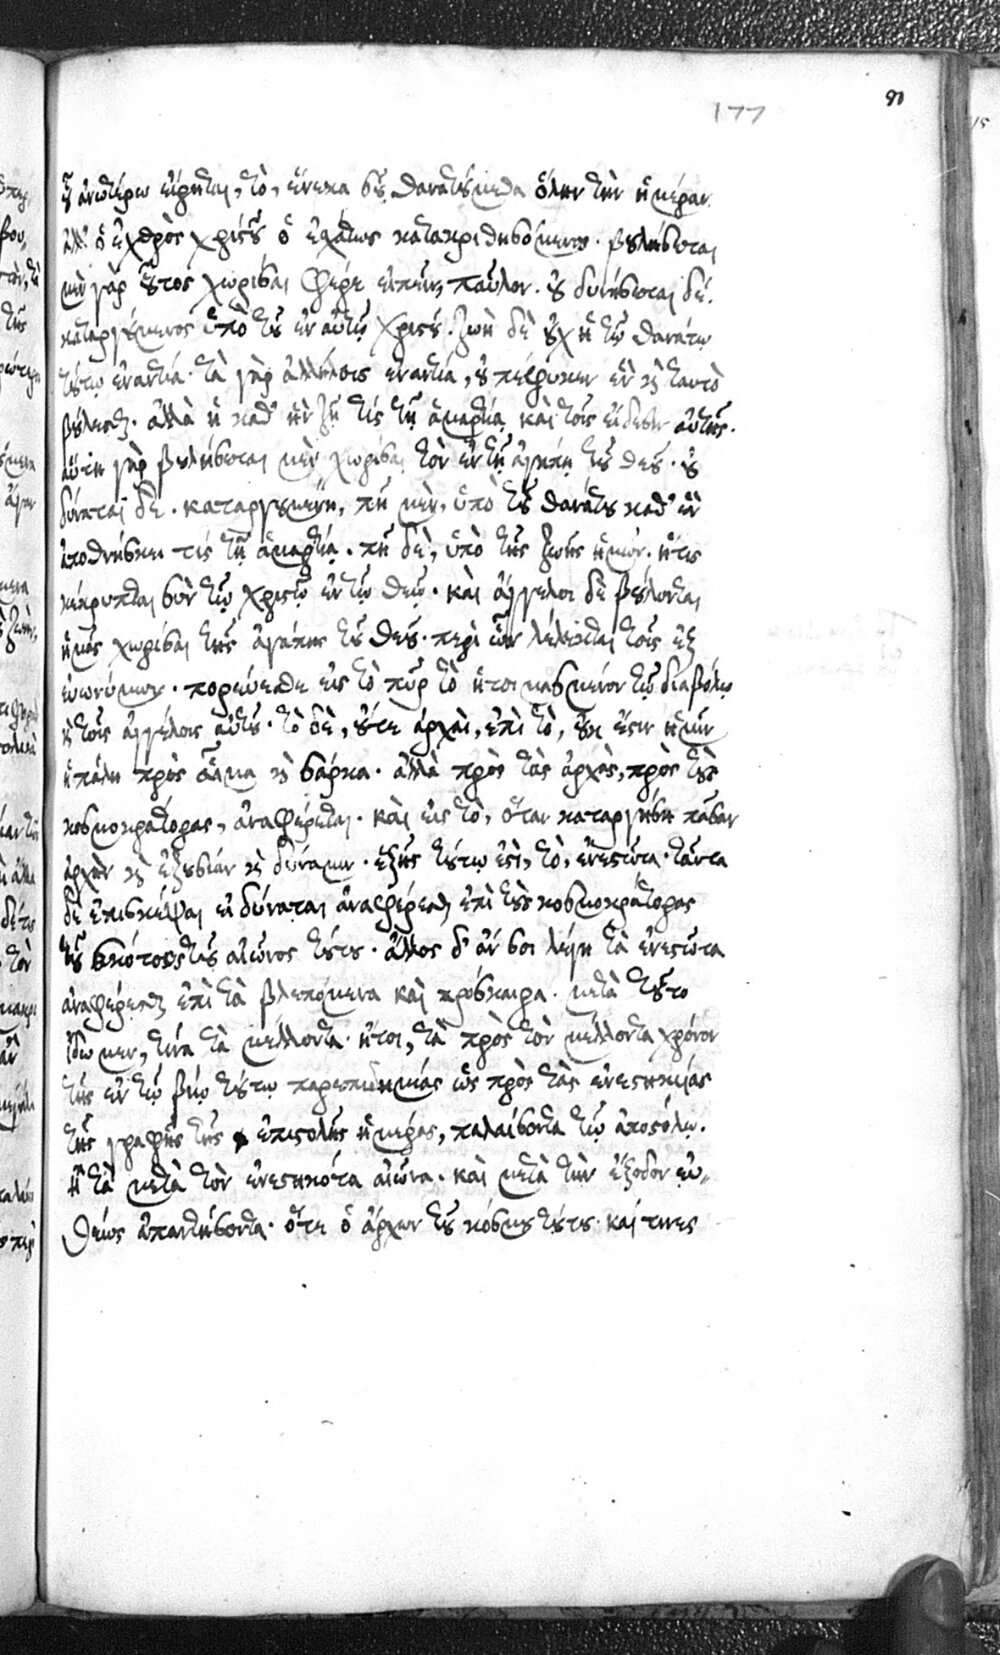 177 90
οὗ ἀνωτέρω εἴρηται, τὸ, ἕνεκα σοῦ θανατούμεθα ὅλην τὴν ἡμέραν.
ἀλλ' ὁ ἐχθρὸς χριστοῦ ὁ ἐσχάτως καταργηθησόμενος. βουλήσεται
μὲν γὰρ οὗτος χωρίσαι φέρε εἰπεῖν, παῦλον. οὐ δυνήσεται δέ.
καταργούμενος ὑπὸ τοῦ ἐν αὐτῷ χριστοῦ. ζωὴ δὲ οὐχ ἡ τῷ θανάτῳ
τούτῳ ἐναντία. τὰ γὰρ ἀλλήλοις ἐναντία, οὐ πέφυκεν ἓν καὶ ταυτὸ
βούλεσθαι. ἀλλὰ ἡ καθ' ἣν ζῇ τίς τῇ ἁμαρτίᾳ καὶ τοῖς εἴδεσιν αὐτῆς.
αὕτη γὰρ βουλήσεται μὲν χωρίσαι τὸν ἐν τῇ ἀγάπῃ τοῦ θεοῦ. οὐ
δύναται δὲ. καταργουμένη, πῇ μὲν, ὑπὸ τοῦ θανάτου καθ' ὃν
ἀποθνήσκει τίς τῇ ἁμαρτίᾳ. πῇ δὲ, ὑπὸ τῆς ζωῆς ἡμῶν. ἥτις
κέκρυπται σὺν τῷ χριστῷ ἐν τῷ θεῷ. καὶ ἄγγελοι δὲ βούλονται
ἡμᾶς χωρίσαι τῆς ἀγάπης τοῦ θεοῦ. περὶ ὧν λέλεκται τοῖς ἐξ
εὐωνύμων. πορεύεσθε εἰς τὸ πῦρ τὸ ἡτοιμασμένον τῷ διαβόλῳ
καὶ τοῖς ἀγγέλοις αὐτοῦ. τὸ δὲ, οὔτε ἀρχαὶ, ἐπὶ τὸ, οὐκ ἔστιν ἡμῖν
ἡ πάλη πρὸς αἷμα καὶ σάρκα. ἀλλὰ πρὸς τὰς ἀρχὰς, πρὸς τοὺς
κοσμοκράτορας, ἀναφέρεται. καὶ εἰς τὸ, ὅταν καταργήσῃ πᾶσαν
ἀρχὴν καὶ ἐξουσίαν καὶ δύναμιν. ἑξῆς τούτῳ ἐστὶ, τὸ, ἐνεστῶτα. ταῦτα
δὲ ἐπισκέψαι εἰ δύναται ἀναφέρεσθαι ἐπὶ τοὺς κοσμοκράτορας
τοῦ σκότους τοῦ αἰῶνος τούτου. ἄλλος δ' ἄν σοι λέγῃ τὰ ἐνεστῶτα
ἀναφέρεσθαι ἐπὶ τὰ βλεπόμενα καὶ πρόσκαιρα. μετὰ τοῦτο
ἴδωμεν, τίνα τὰ μέλλοντα. ἤτοι, τὰ πρὸς τὸν μέλλοντα χρόνον
τῆς ἐν τῷ βίῳ τούτῳ παρεπιδημίας ὡς πρὸς τὰς ἐνεστηκυίας
τῆς γραφῆς τῆς ἐπιστολῆς ἡμέρας, παλαίσοντα τῷ ἀποστόλῳ.
ἢ τὰ μετὰ τὸν ἐνεστηκότα αἰῶνα. καὶ μετὰ τὴν ἔξοδον εὐ„
θέως ἀπαντήσοντα. ὅτε ὁ ἄρχων τοῦ κόσμου τούτου. καί τινες